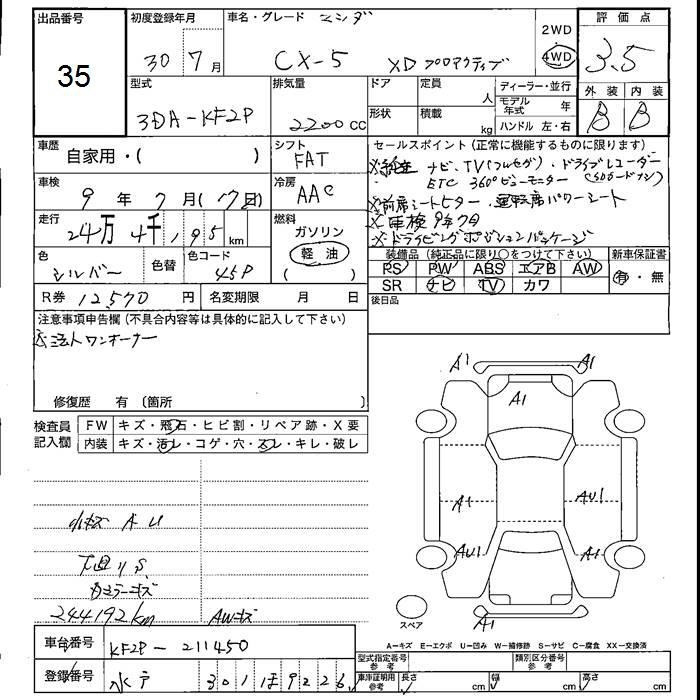 出品番号 35
初度登録年月 30 7 月
車名・グレード マツダ
CX-5 XD プロアクティブ
2WD
4WD
評価点
3.5
外装 内装
B B
型式 3DA-KF2P
排気量 2200 cc
ドア 定員 人
形状 積載 kg
ディーラー・並行
モデル年式 年
ハンドル 左・右
車歴 自家用・( )
シフト FAT
セールスポイント(正常に機能するものに限ります)
※純正 ナビ、TV(フルセグ)・ドライブレコーダー
ETC 360°ビューモニター
※前席シートヒーター・運転席パワーシート
※車検9年7月
※ドライビングポジションパッケージ
車検 9 年 7 月(17日)
冷房 AAC
走行 24万 4千 195 km
燃料 ガソリン
軽油
( )
色 シルバー 色替 色コード 45P
装備品(純正品に限り○をつけて下さい)
PS PW ABS エアB AW
SR ナビ TV カワ
新車保証書
有・無
R券 12570 円 名変期限 月 日
後日品
注意事項申告欄(不具合内容等は具体的に記入して下さい)
※法人ワンオーナー
修復歴 有(箇所 )
検査員記入欄
FW キズ・飛石・ヒビ割・リペア跡・X要
内装 キズ・汚レ・コゲ・穴・スレ・キレ・破レ
A1 A1
A1
A1 AU1
AU1 A1
A1
小キズ A U
下廻りS
カメラーキズ
244192km AWキズ
スペア
A-キズ E-エクボ U-凹み W-補修跡 S-サビ C-腐食 XX-交換済
車台番号 KF2P-211450
登録番号 水戸 301 ほ 9226
型式指定番号 参考 類別区分番号 参考
車庫証明用 参考 長さ cm 幅 cm 高さ cm